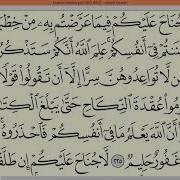 جُنَاحَ عَلَيْكُمْ فِيمَا عَرَّضْتُم بِهِۦ مِنْ خِطْبَ
ننتُمْ فِىٓ أَنفُسِكُمْ عَلِمَ ٱللَّهُ أَنَّكُمْ سَتَذْكُرُ
ن لَّا تُوَاعِدُوهُنَّ سِرًّا إِلَّآ أَن تَقُولُوا۟ قَوْلًا
مُوا۟ عُقْدَةَ ٱلنِّكَاحِ حَتَّىٰ يَبْلُغَ ٱلْكِتَٰ
أَنَّ ٱللَّهَ يَعْلَمُ مَا فِىٓ أَنفُسِكُمْ فَٱحْذَرُوهُ
غَفُورٌ حَلِيمٌ ٢٣٥ لَّا جُنَاحَ عَلَيْكُمْ إِن طَلَّقْ